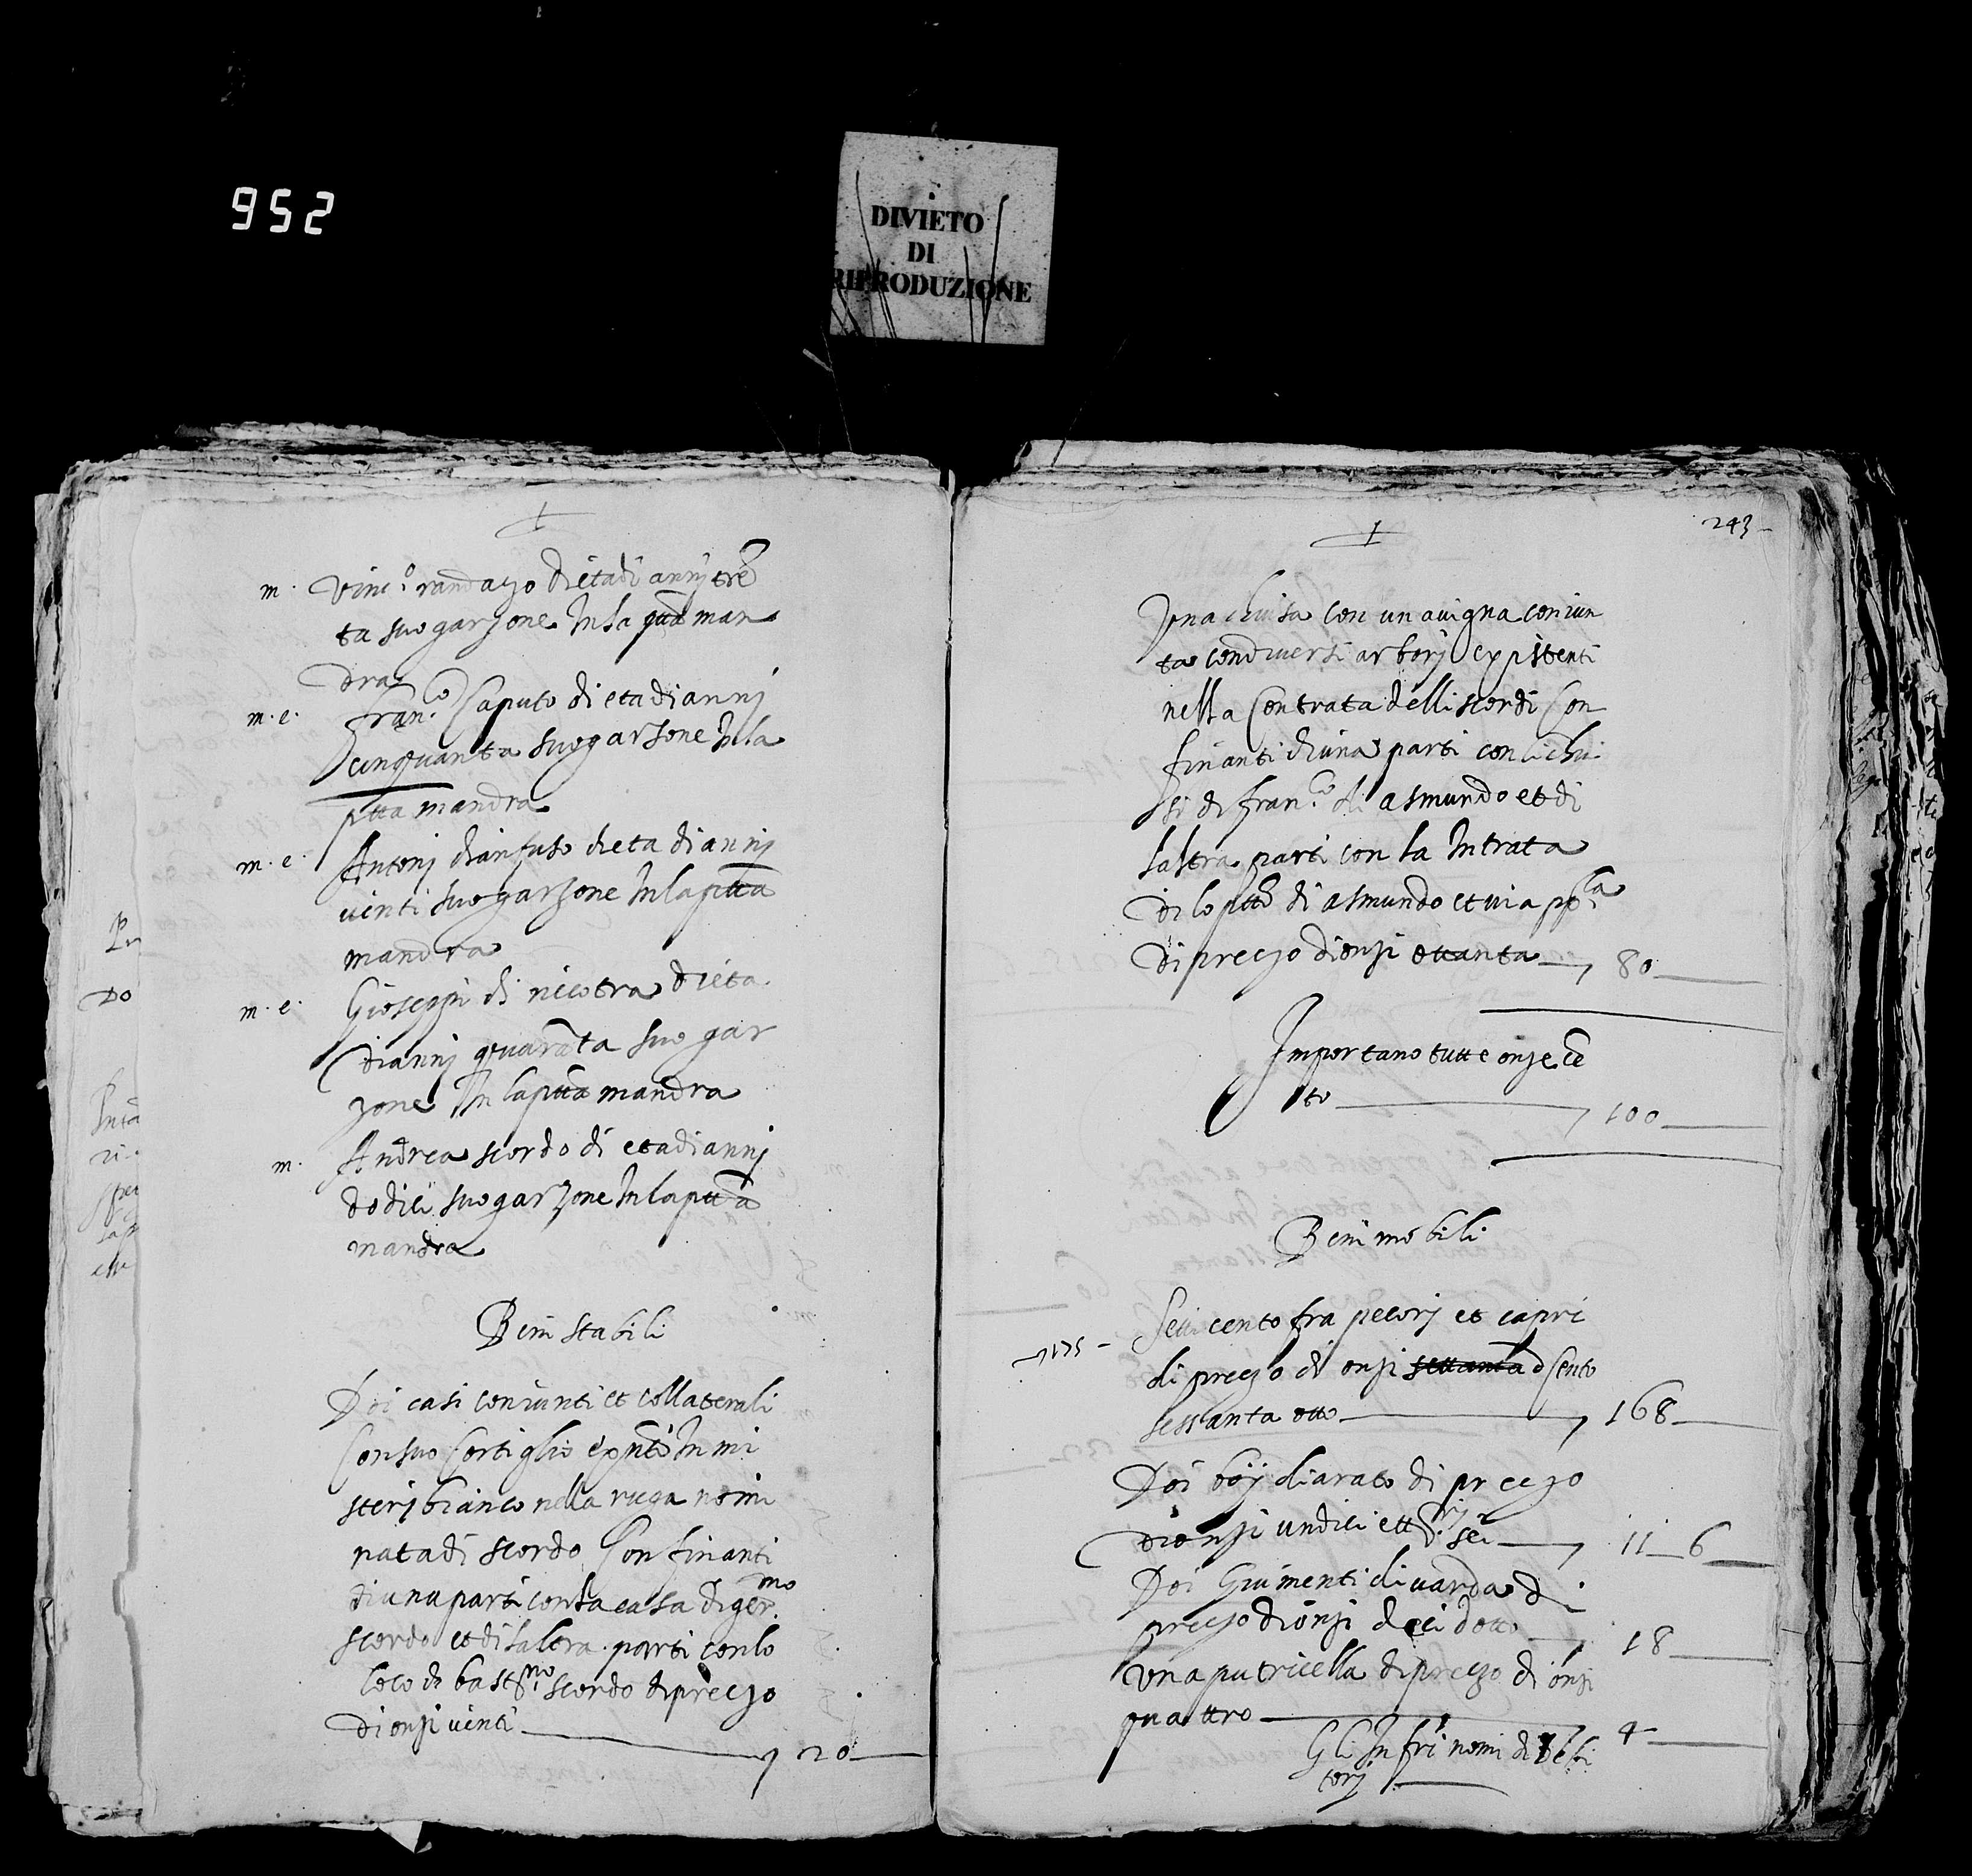 952
DIVIETO
DI
RIPRODUZIONE
m. Vinc.o randazo di eta di annj tre
ta suo garzone In la ptta man
dra
m. e. Fran.co Caputo di eta di annj
cinquanta suo garzone In la
ptta mandra
m. e. Antonj dianfuso di eta di annj
uinti suo garzone In la ptta
mandra
m. e. Gioseppi di nicotra di eta
di annj quarāta suo gar
zone In la ptta mandra
m. Andrea scordo di eta di annj
dodici suo garzone In la ptta
mandra
Beni stabili
Doi casi coniunti et collaterali
Con suo Cortiglio In mi
sterj bianco nella ruga nomi
nata di scordo Confinanti
di una parti con la casa di ger.mo
scordo et di laltra parti con lo
loco di bast.no scordo di prezo
di onzi uinti 20
243
Una chiusa con una uigna coniun
ta con diuersi arborj existenti
nella Contrata delli scordi Con
finanti di una parti con li chiu
si di fran.co di asmundo et di
laltra parti con la Intrata
di lo ptto di asmundo et uia pp.ca
di prezo di onzi ottanta 80
Importano tutte onze cē
to 100
Beni mobili
Sei cento fra pecorj et capri
di prezo di onzi settanta cento
sessanta otto 168
Doi boj di arato di prezo
di onzi undici et tt.rj sei 11 6
Doi Giumenti di uarda di
prezo di onzi decidotto 18
Una putricella di prezo di onzi
quattro 4
Gli Infri nomi di debi
torj